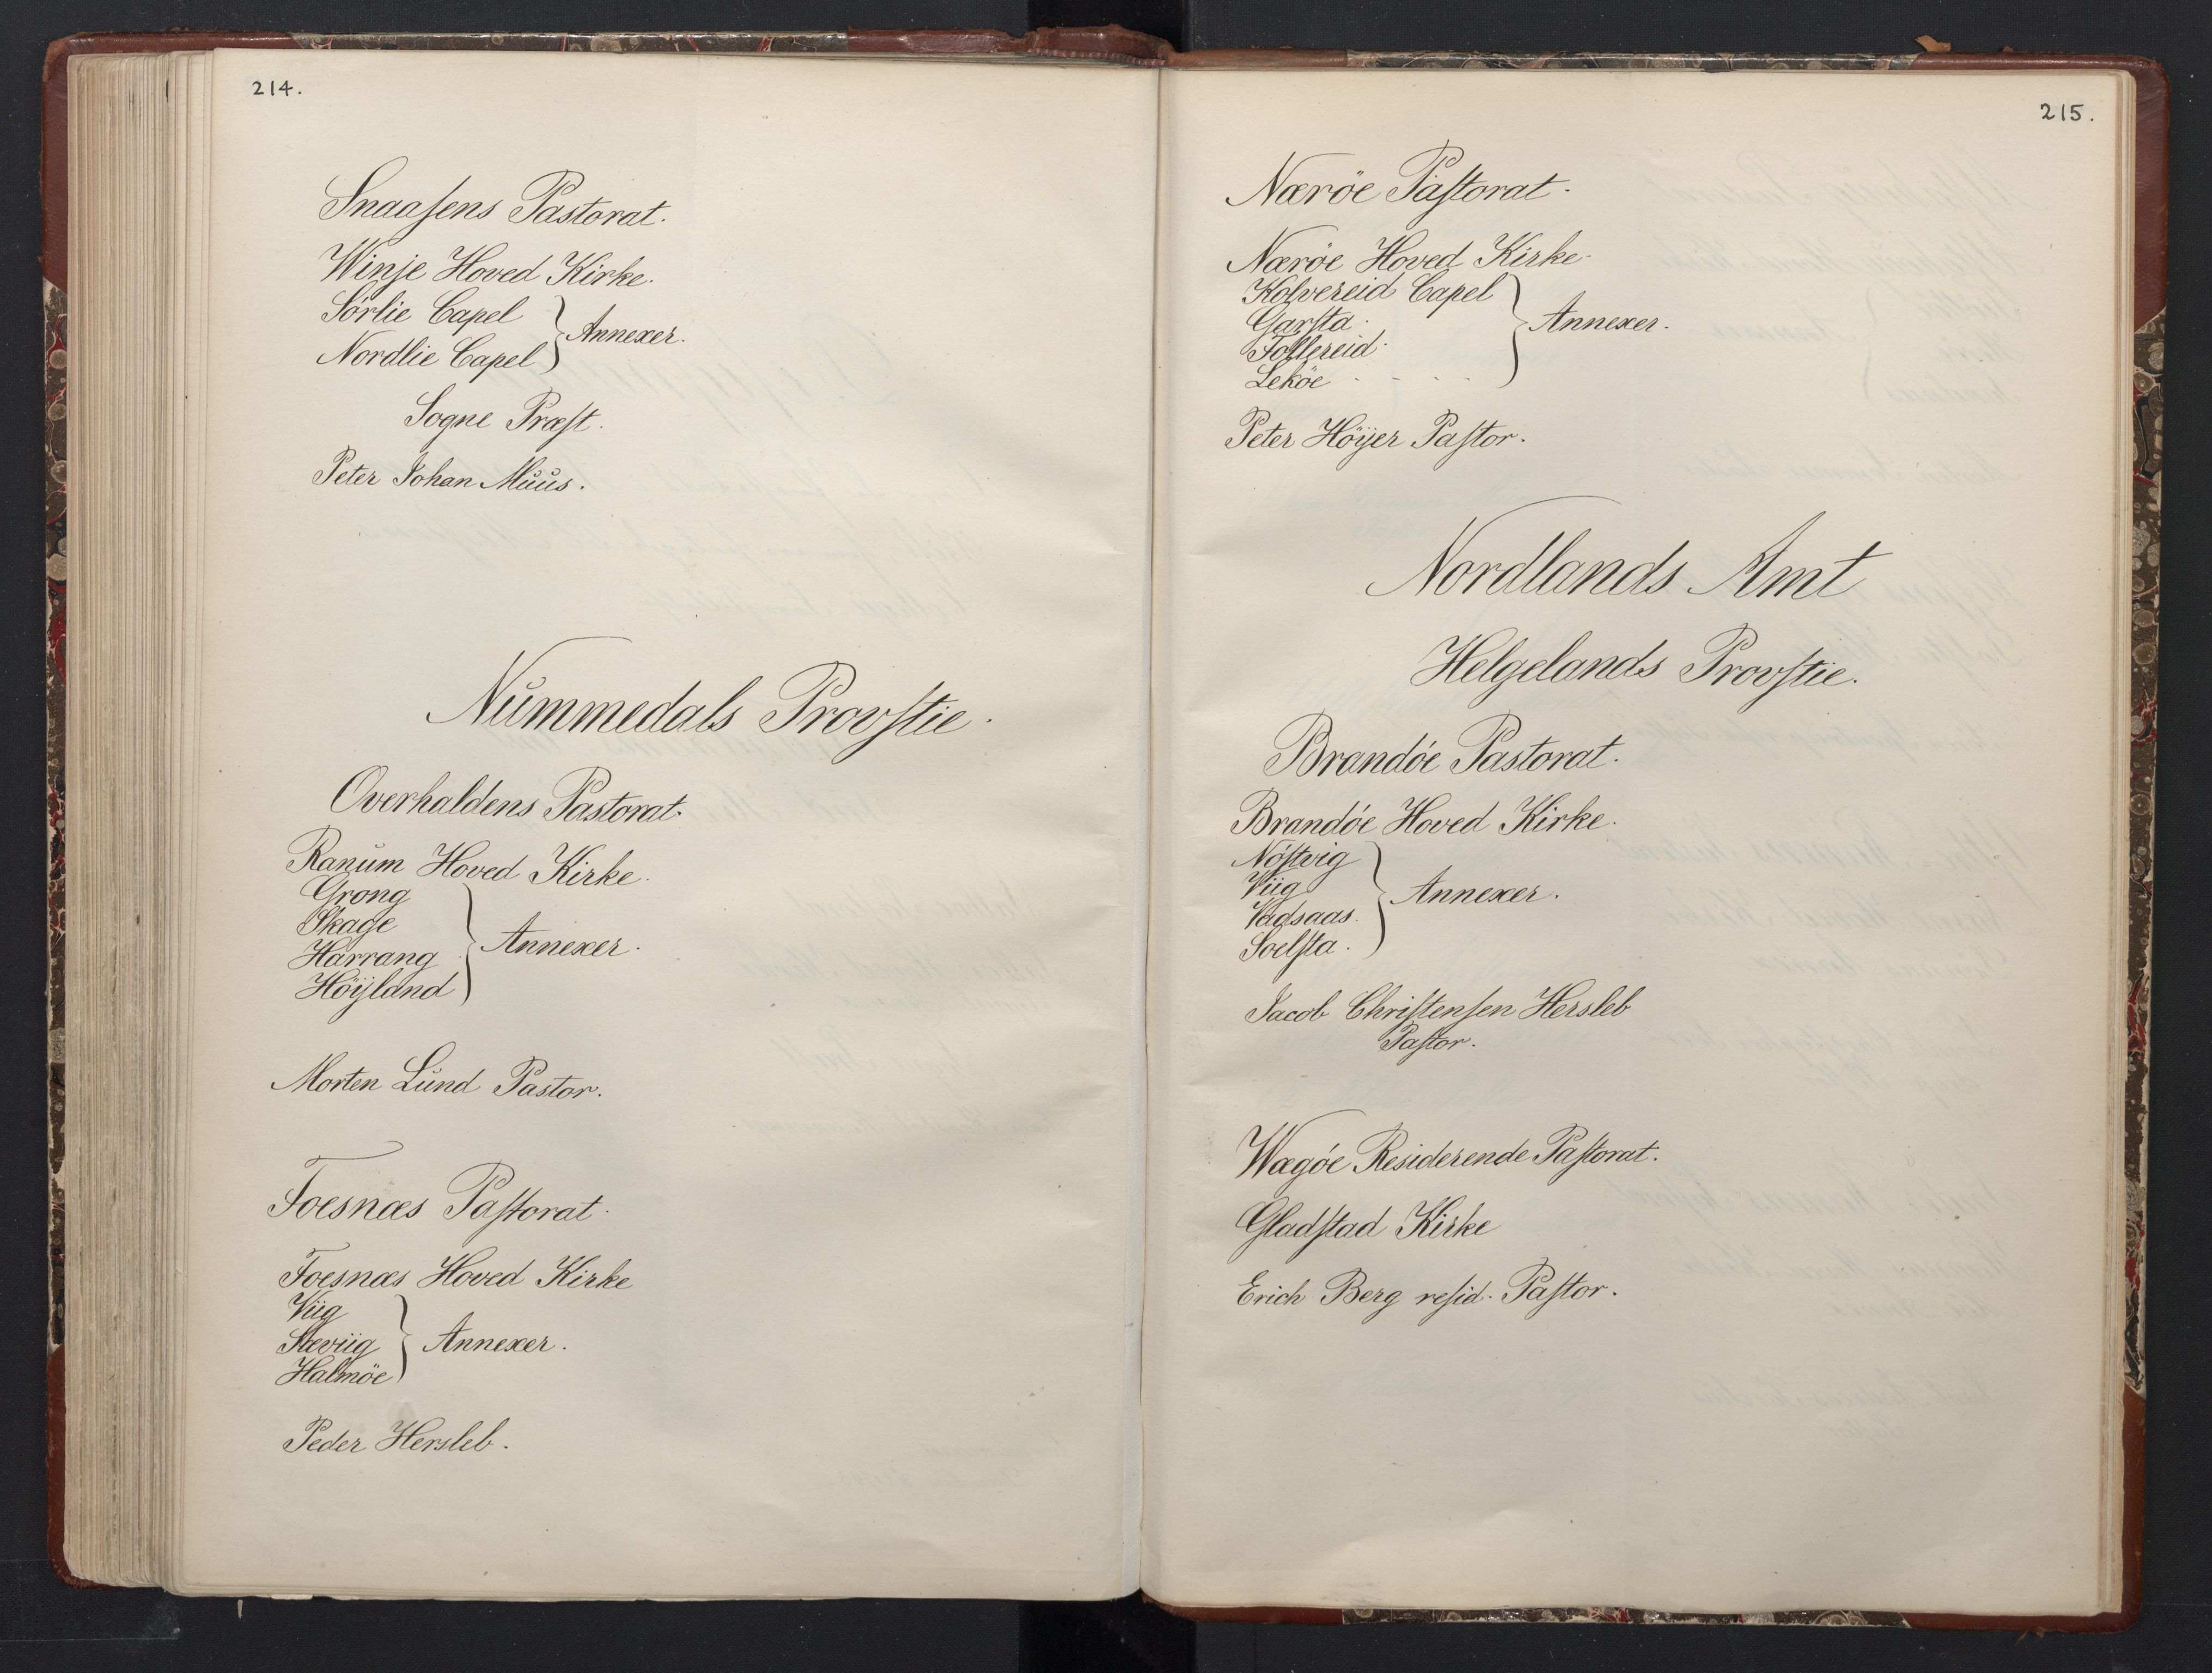 214.
Snaasens Pastorat.
Winje Hoved Kirke.
Sørlie Capel
Nordlie Capel
Annexer.
Sogne Præst.
Peter Johan Muus.
Nummedals Provstie.
Overhaldens Pastorat.
Ranum Hoved Kirke.
Grong
Skage
Harrang
Höyland
Annexer.
Morten Lund Pastor.
Foesnæs Pastorat.
Foesnæs Hoved Kirke
Viig
Sæviig
Halmöe
Annexer.
Peder Hersleb.
215.
Nærøe Pastorat.
Nærøe Hoved Kirke.
Kolvereid Capel
Garsta.
Follereid.
Leköe - - - -
Annexer.
Peter Höyer Pastor.
Nordlands Amt
Helgelands Provstie.
Brandøe Pastorat.
Brandøe Hoved Kirke.
Nøstvig
Viig
Vadsaas.
Soelsta.
Annexer.
Jacob Christensen Hersleb
Pastor.
Wægøe Residerende Pastorat.
Gladstad Kirke
Erich Berg resid. Pastor.